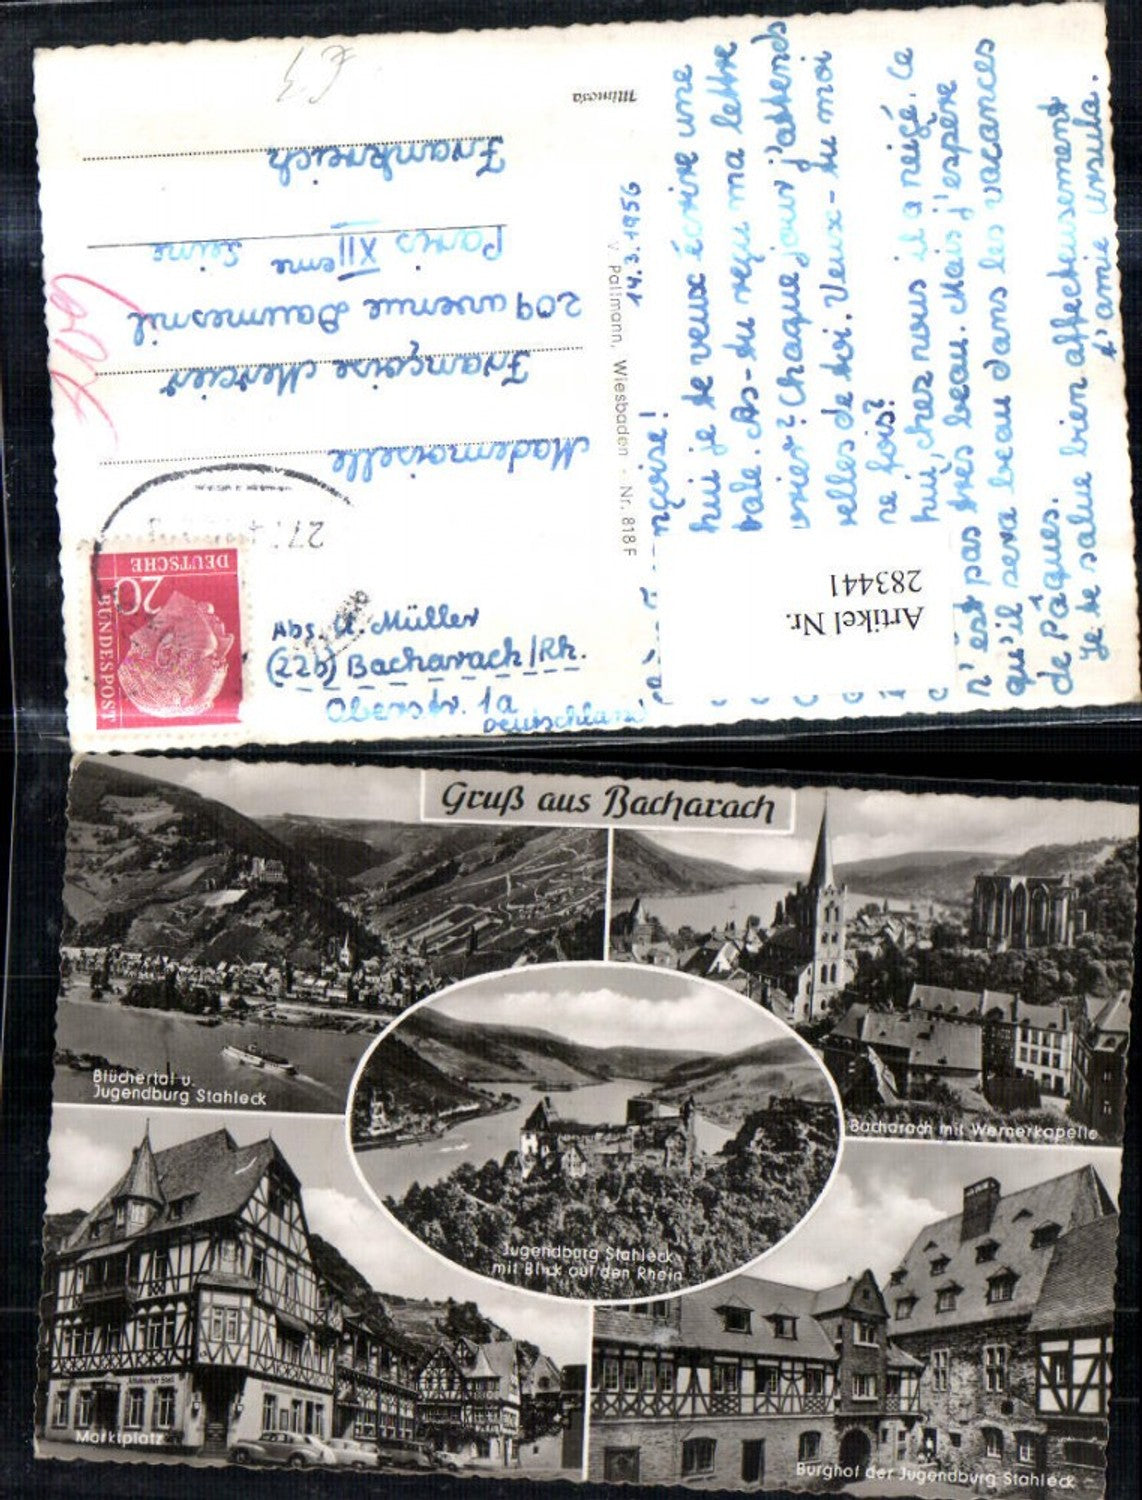 Mimosa
Pallmann, Wiesbaden - Nr. 818 F
14.3.1956
nçoise!
hui je te veux écrire une
tale. As-tu reçu ma lettre
vrier? Chaque jour j'attends
velles de toi. Veux-tu moi
ne fois?
hui, chez nous il a neigé. Ce
n'est pas très beau. Mais j'espère
qu'il sera beau dans les vacances
de Pâques.
Je te salue bien affectueusement
t'amie Ursula.
Mademoiselle
Françoise Mercier
209 avenue Daumesnil
Paris XIIeme Seine
Frankreich
Abs. U. Müller
(22b) Bacharach/Rh.
Oberstr. 1a
Deutschland
DEUTSCHE
BUNDESPOST
20
Artikel Nr.
283441
Gruß aus Bacharach
Blüchertal u.
Jugendburg Stahleck
Bacharach mit Wernerkapelle
Jugendburg Stahleck
mit Blick auf den Rhein
Marktplatz
Burghof der Jugendburg Stahleck